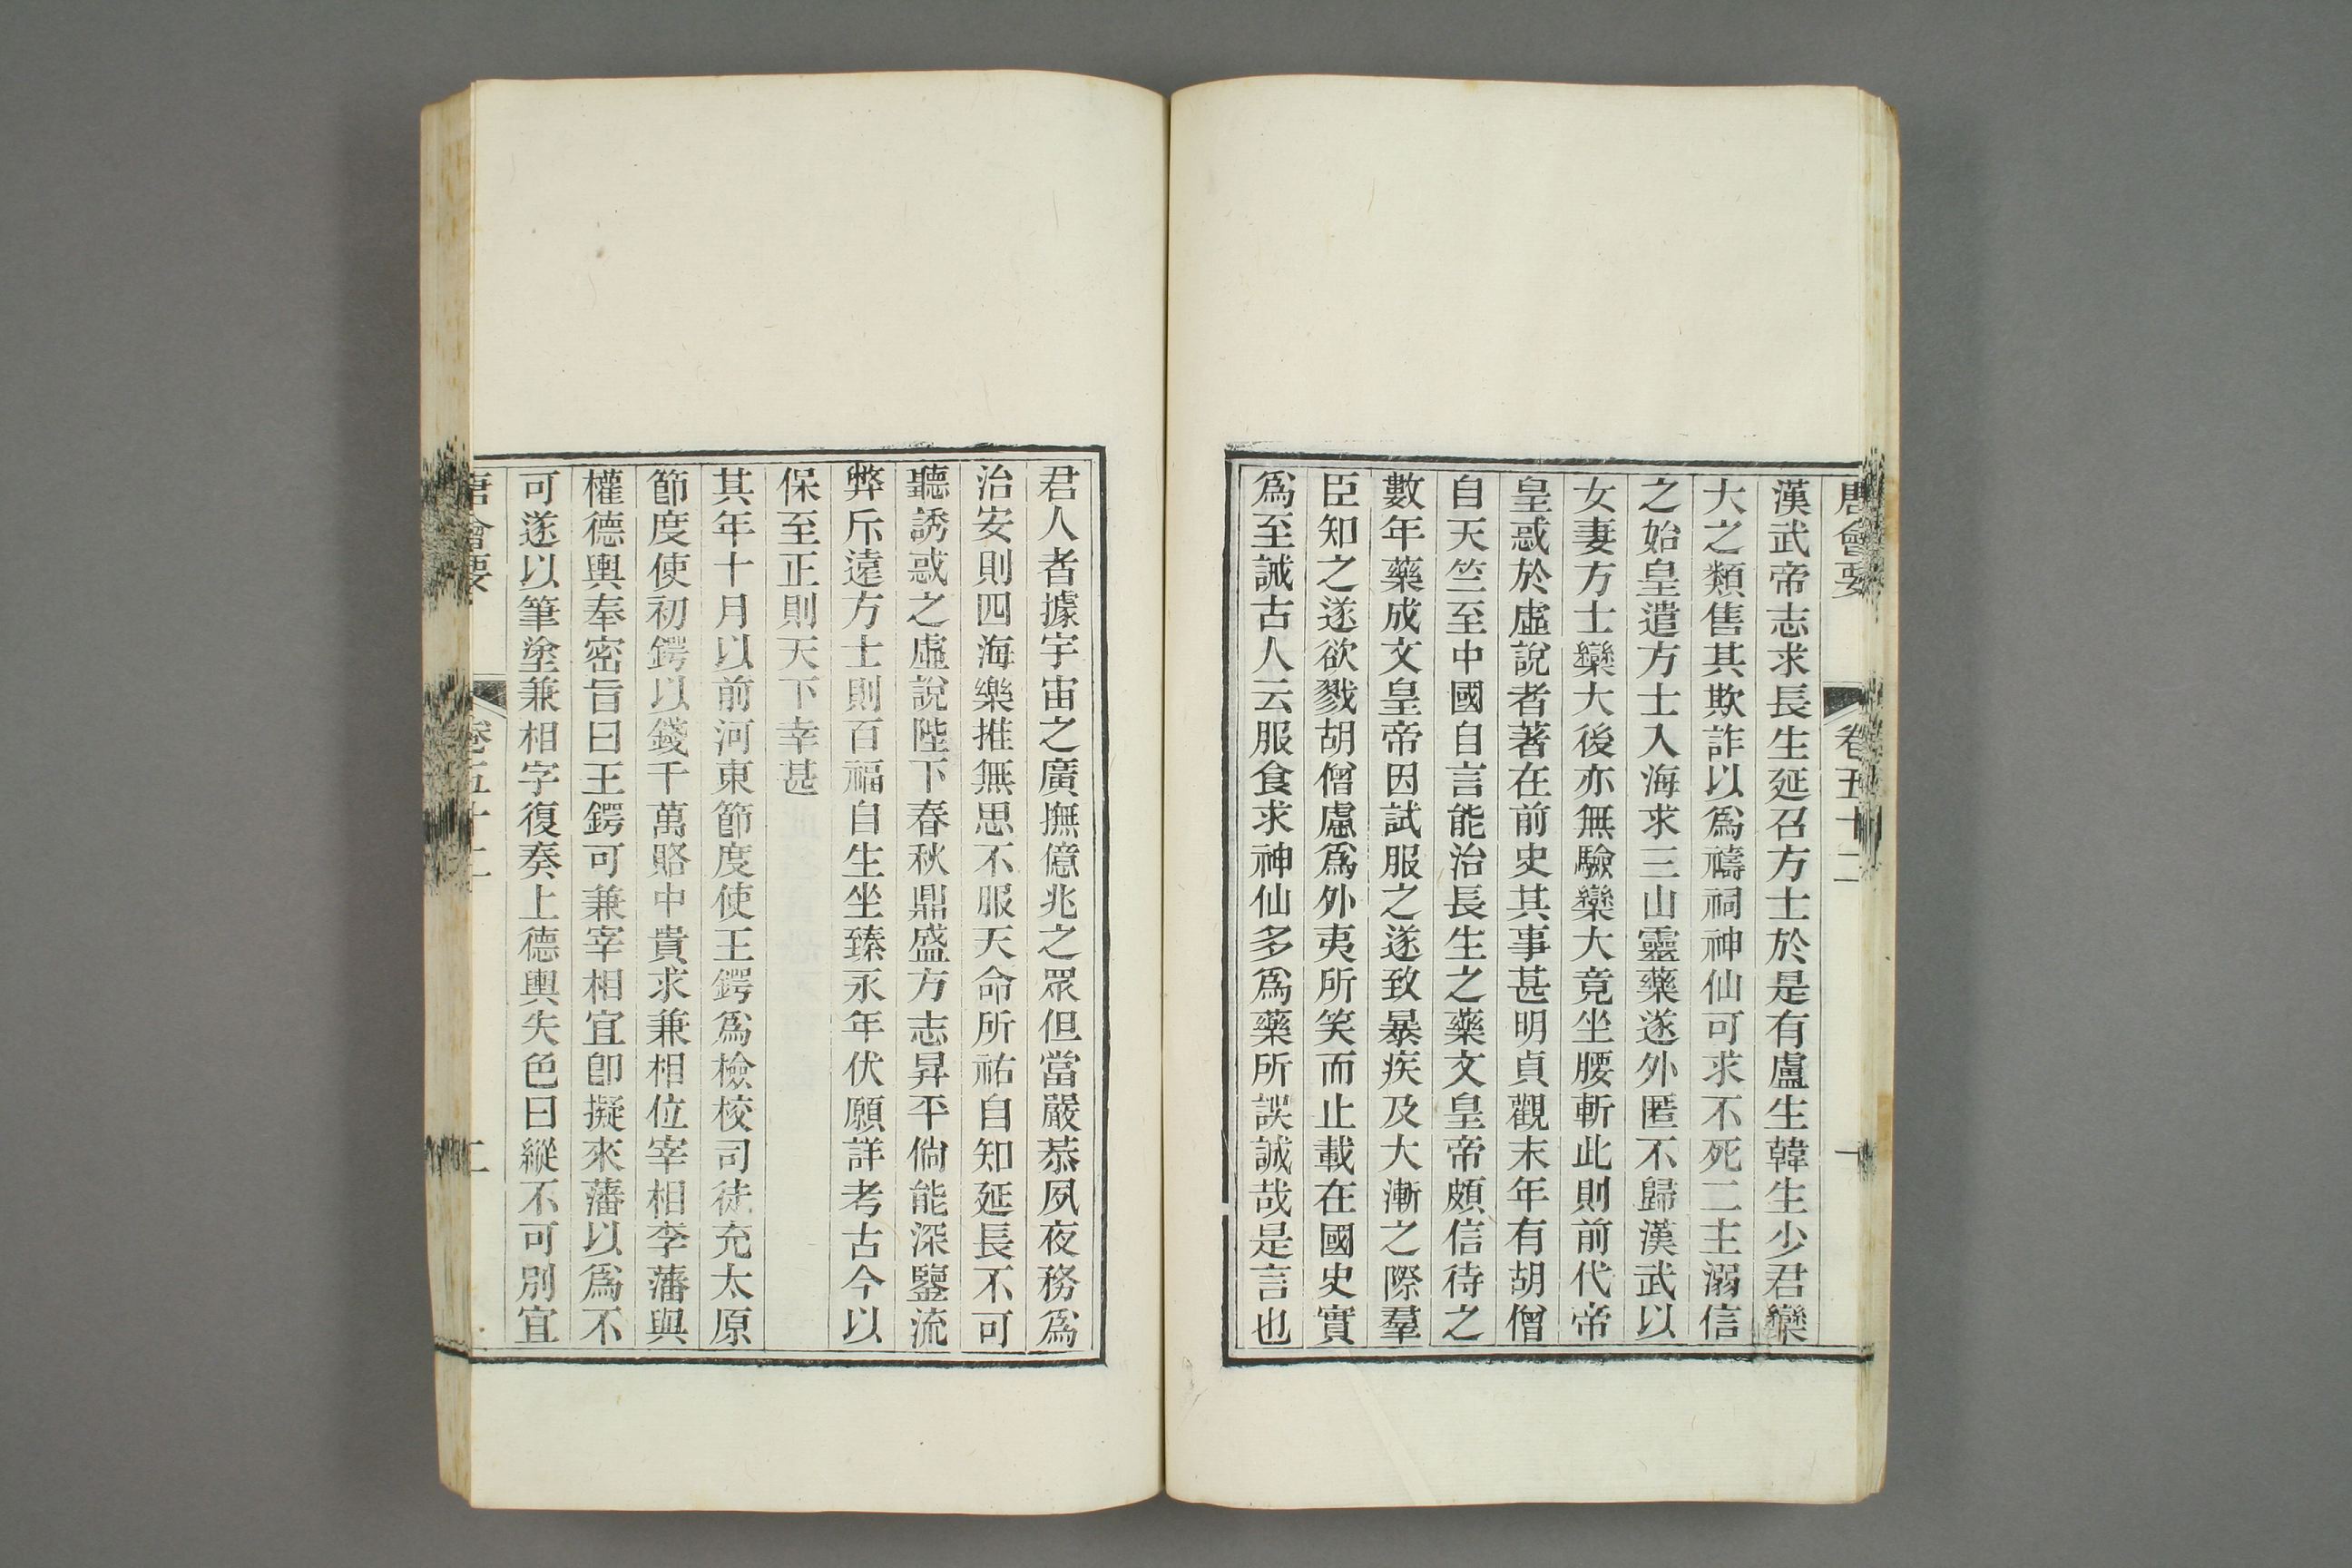 唐會要 卷五十二 一
漢武帝志求長生延召方士於是有盧生韓生少君欒
大之類售其欺詐以爲禱祠神仙可求不死二主溺信
之始皇遣方士入海求三山靈藥遂外匿不歸漢武以
女妻方士欒大後亦無驗欒大竟坐腰斬此則前代帝
皇惑於虛說者著在前史其事甚明貞觀末年有胡僧
自天竺至中國自言能治長生之藥文皇帝頗信待之
數年藥成文皇帝因試服之遂致暴疾及大漸之際羣
臣知之遂欲戮胡僧慮爲外夷所笑而止載在國史實
爲至誡古人云服食求神仙多爲藥所誤誠哉是言也
君人者據宇宙之廣撫億兆之眾但當嚴恭夙夜務爲
治安則四海樂推無思不服天命所祐自知延長不可
聽誘惑之虛說陛下春秋鼎盛方志昇平倘能深鑒流
弊斥遠方士則百福自生坐臻永年伏願詳考古今以
保至正則天下幸甚
其年十月以前河東節度使王鍔爲檢校司徒充太原
節度使初鍔以錢千萬賂中貴求兼相位宰相李藩與
權德輿奉密旨曰王鍔可兼宰相宜卽擬來藩以爲不
可遂以筆塗兼相字復奏上德輿失色曰縱不可別宜
唐會要 卷五十二 二